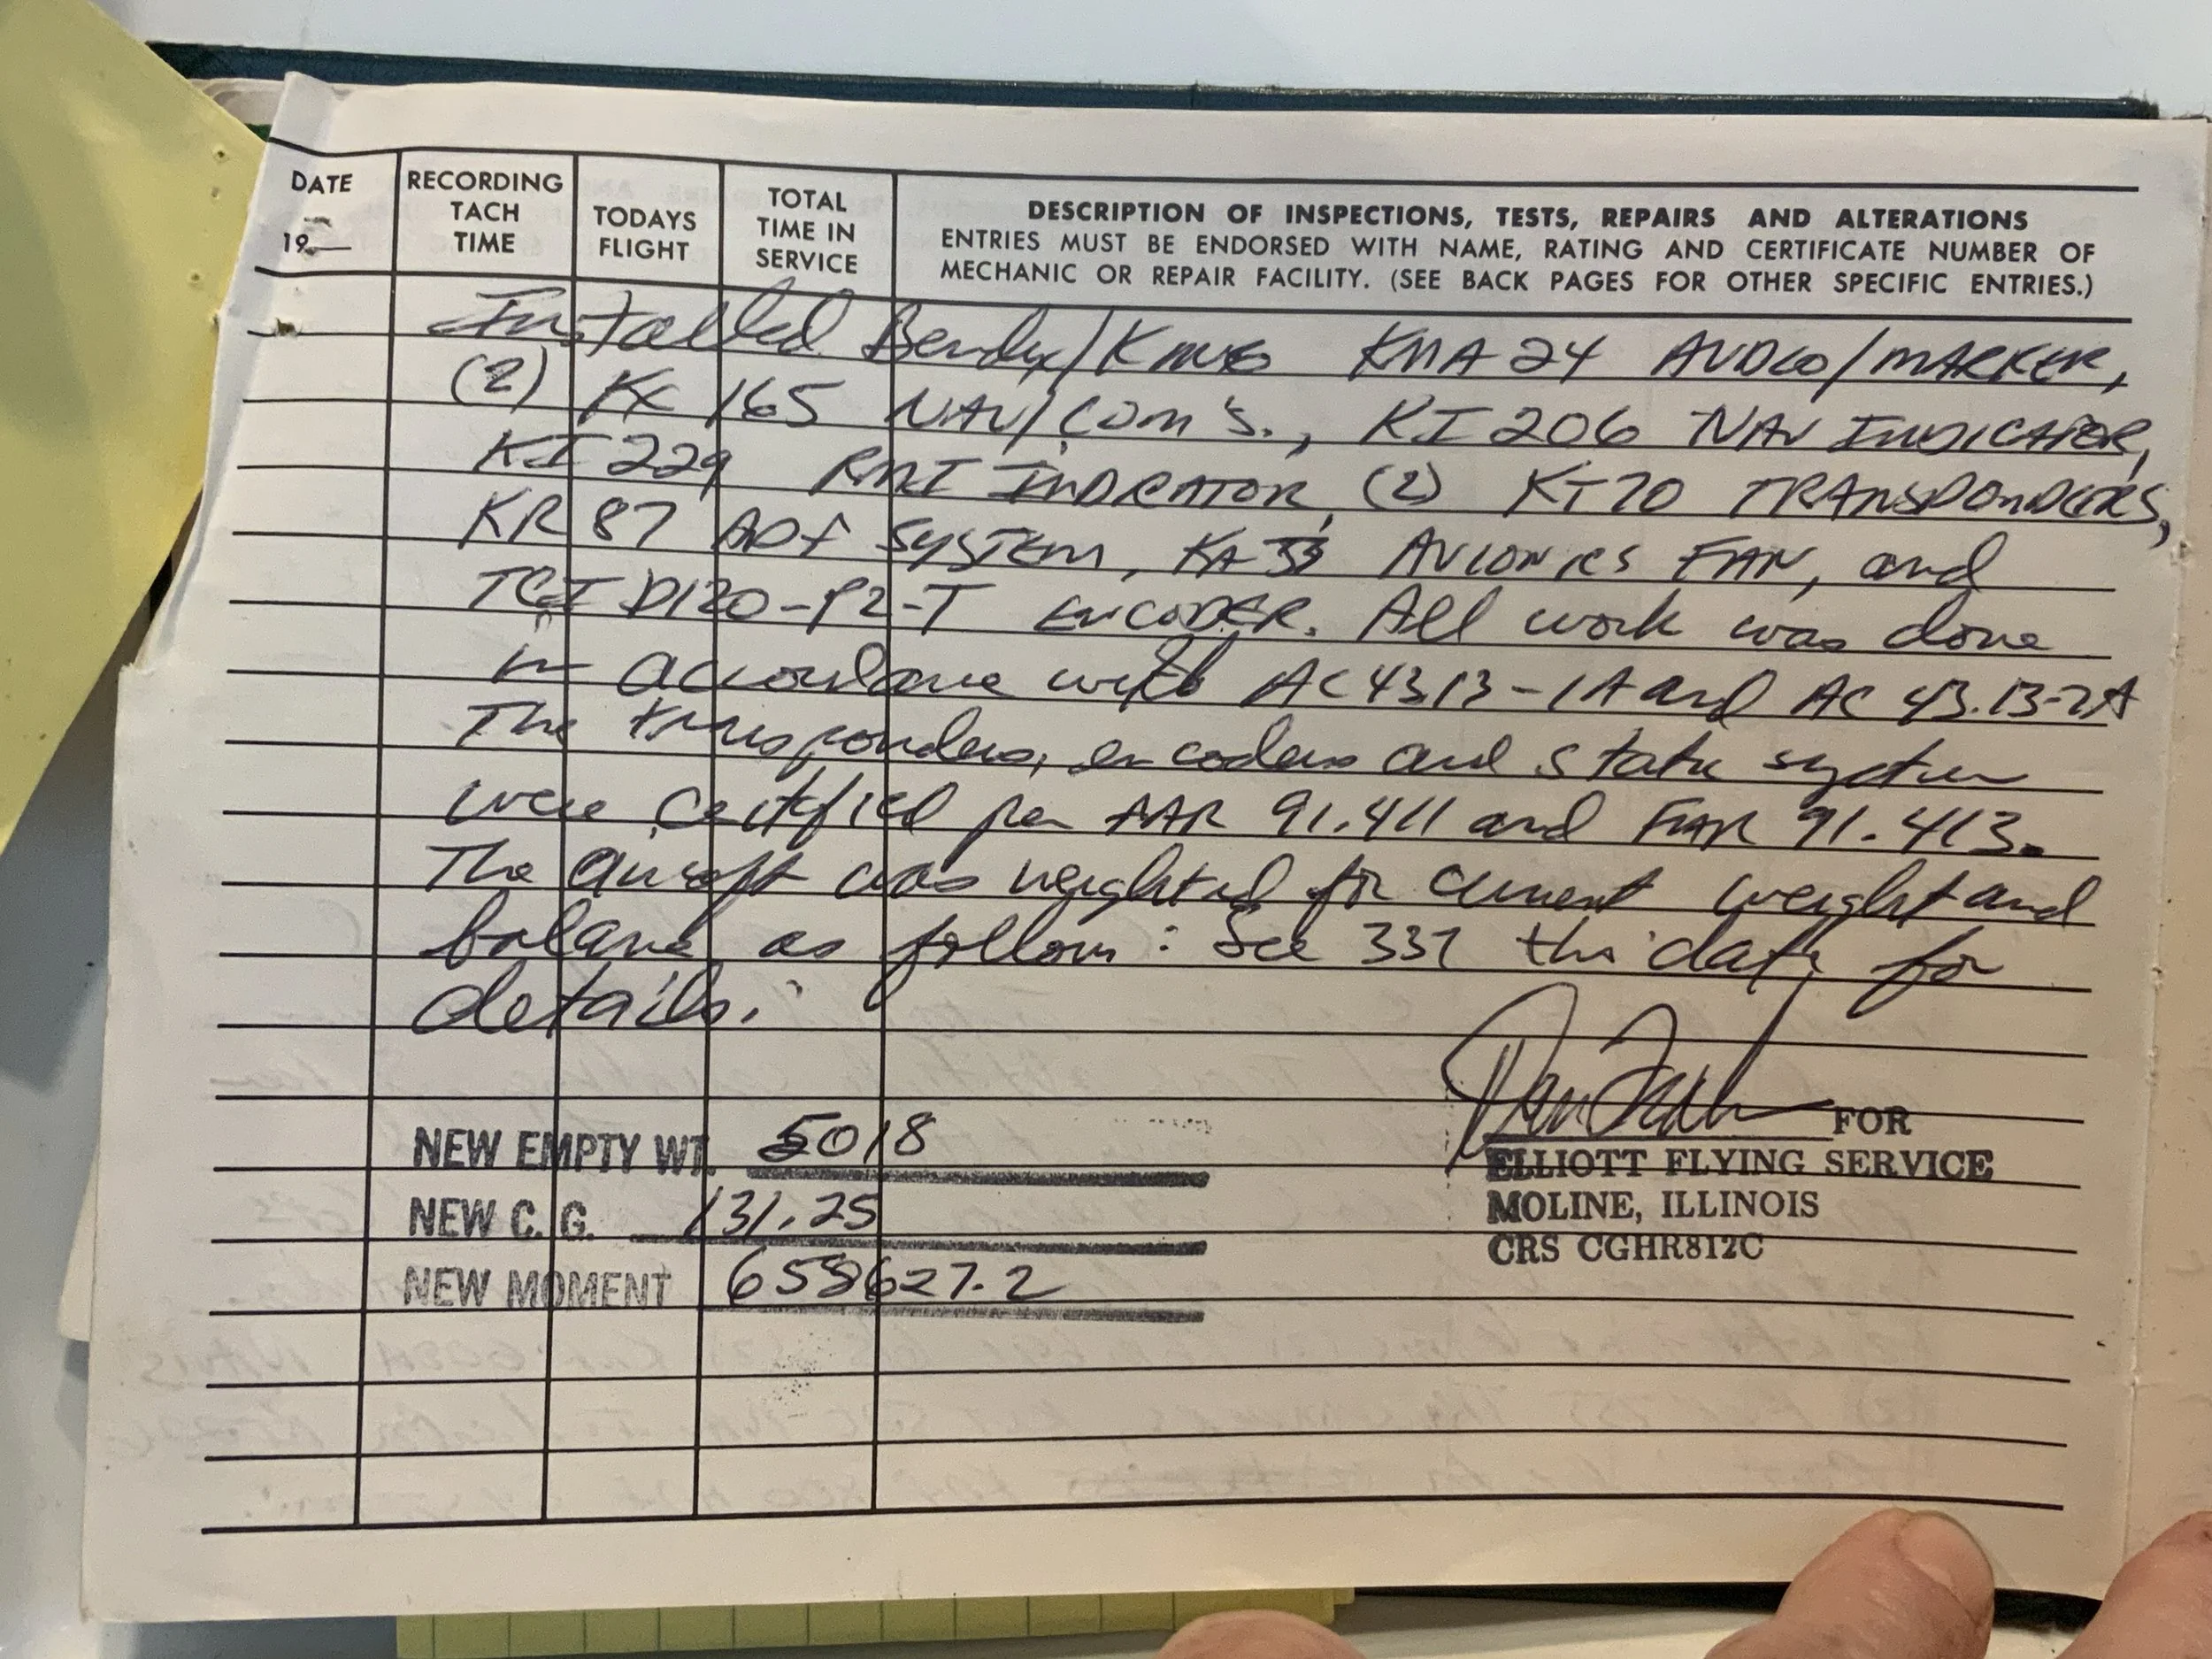 DATE
19__
RECORDING
TACH
TIME
TODAYS
FLIGHT
TOTAL
TIME IN
SERVICE
DESCRIPTION OF INSPECTIONS, TESTS, REPAIRS AND ALTERATIONS
ENTRIES MUST BE ENDORSED WITH NAME, RATING AND CERTIFICATE NUMBER OF
MECHANIC OR REPAIR FACILITY. (SEE BACK PAGES FOR OTHER SPECIFIC ENTRIES.)
Installed Bendix/King KMA 24 AUDIO/MARKER,
(2) KX 165 NAV/COM'S., KI 206 NAV INDICATOR,
KI 229 RMI INDICATOR, (2) KT70 TRANSPONDERS,
KR 87 ADF SYSTEM, KA 33 AVIONICS FAN, and
TCI D120-P2-T ENCODER. All work was done
in accordance with AC 43 13-1A and AC 43.13-2A
The transponders, encoders and static system
were certified per FAR 91.411 and FAR 91.413.
The aircraft was weighted for current weight and
balance as follows: See 337 this date for
details.
NEW EMPTY WT. 5018
NEW C.G. 131.25
NEW MOMENT 658627.2
FOR
ELLIOTT FLYING SERVICE
MOLINE, ILLINOIS
CRS CGHR812C